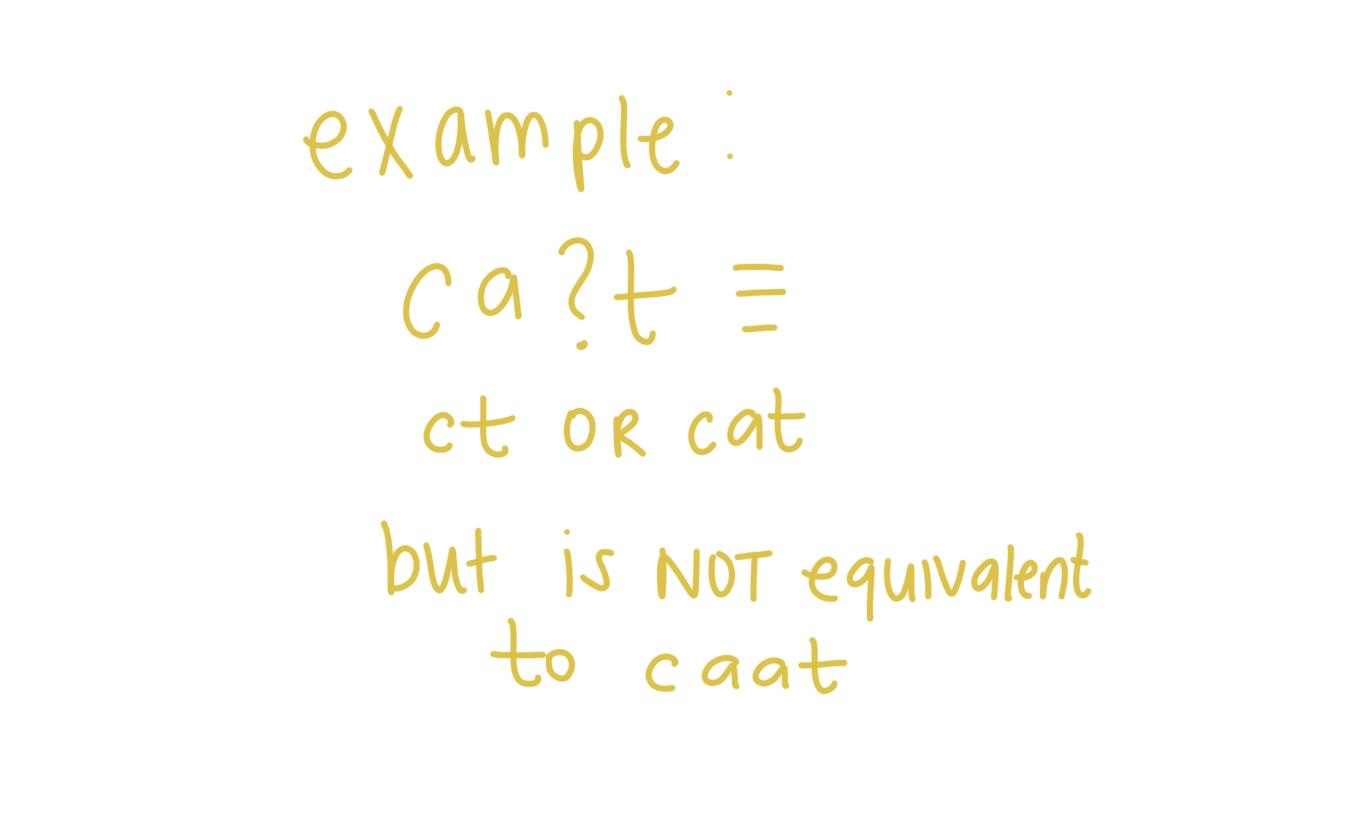 example :
ca?t ≡
ct OR cat
but is NOT equivalent
to caat